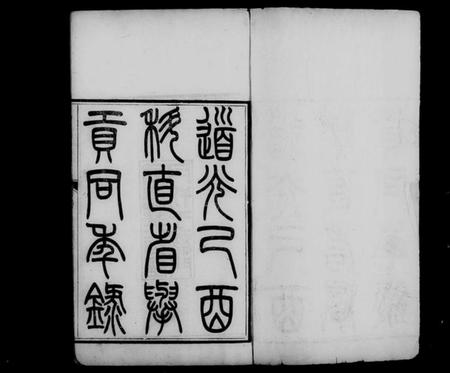 道光己酉
科直省舉
貢同年錄